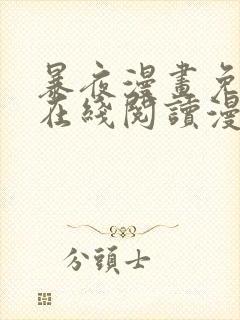 暴夜漫畫免
在綫閱讀漫
分頭士